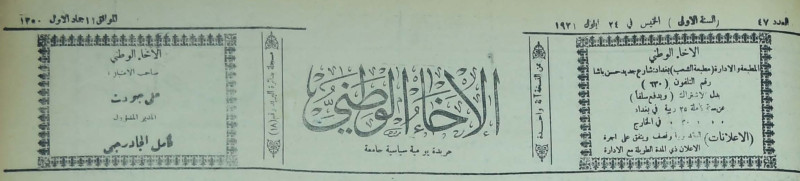 العدد ٤٧
(السنة الاولى)
الخميس في ٢٤ ايلول ١٩٣١
الموافق ١١ جماد الاول ١٣٥٠
الاخاء الوطني
المطبعة والادارة (مطبعة الشعب) بغداد: شارع جديد حسن باشا
رقم التلفون (٦٣٠)
بدل الاشتراك (ويدفع سلفاً)
عن سنة كاملة ٢٥ ربية في بغداد
٣٠ في الخارج
(الاعلانات) ويتفق على اجرة
الاعلان ذي المدة الطويلة مع الادارة
ثمن النسخة آنة واحدة
الاخاء الوطني
جريدة يومية سياسية جامعة
صندوق دائرة البريد رقم (١٨)
الاخاء الوطني
صاحب الامتياز:
علي جودت
المدير المسؤول
كامل الجادرجي